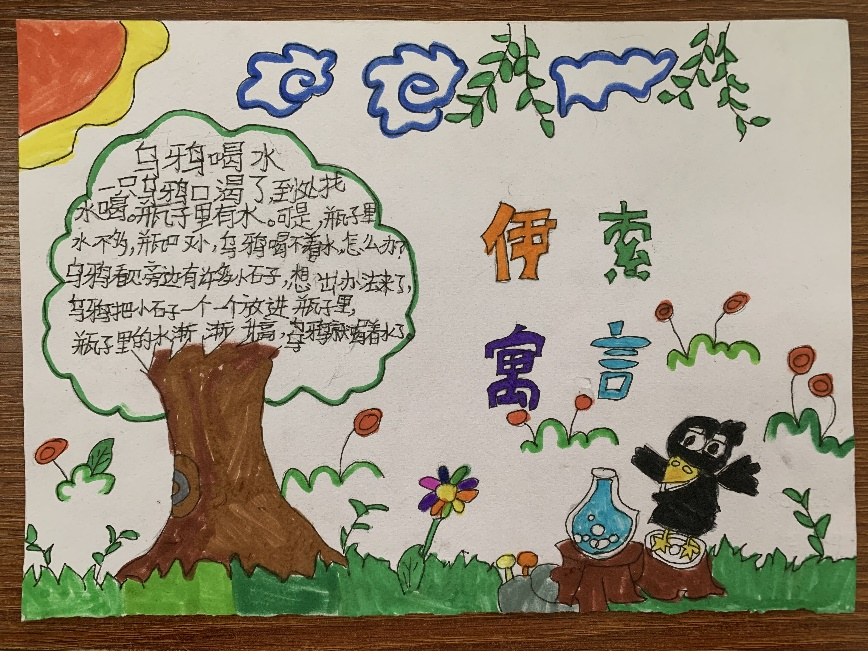 乌鸦喝水
一只乌鸦口渴了,到处找
水喝。瓶子里有水。可是,瓶子里
水不多,瓶口又小,乌鸦喝不着水,怎么办?
乌鸦看见旁边有许多小石子,想出办法来了,
乌鸦把小石子一个一个放进瓶子里,
瓶子里的水渐渐升高,乌鸦就喝着水了。
伊索
寓言